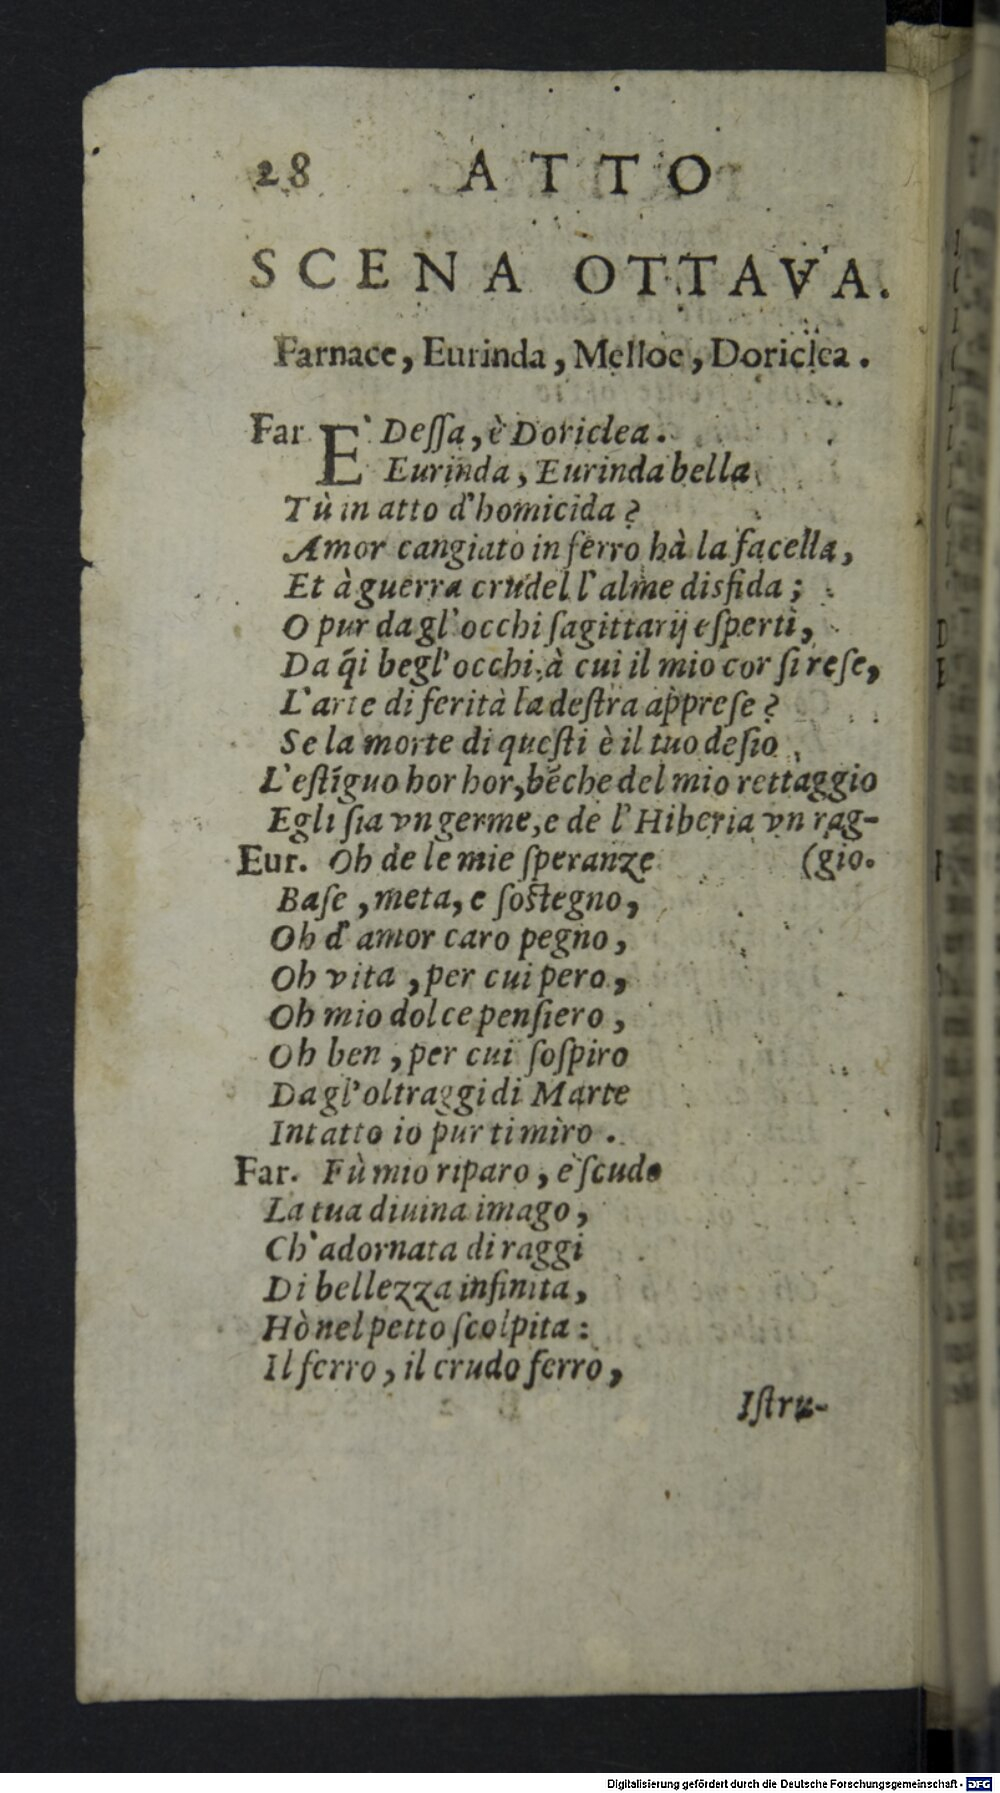 28 ATTO
SCENA OTTAVA.
Farnace, Eurinda, Melloe, Doriclea.
Far E' Dessa, è Doriclea.
Eurinda, Eurinda bella
Tù in atto d'homicida?
Amor cangiato in ferro hà la facella,
Et à guerra crudel l'alme disfida;
O pur dagl'occhi ſagittarij eſperti,
Da q̃i begl'occhi, à cui il mio cor ſi reſe,
L'arte di ferità la deſtra appreſe?
Se la morte di queſti è il tuo deſio,
L'eſtĩguo hor hor, bẽche del mio rettaggio
Egli ſia vn germe, e de l'Hiberia vn rag-
Eur. Oh de le mie ſperanze (gio.
Baſe, meta, e ſoſtegno,
Oh d'amor caro pegno,
Oh vita, per cui pero,
Oh mio dolce penſiero,
Oh ben, per cui ſoſpiro
Dagl'oltraggi di Marte
Intatto io pur ti miro.
Far. Fù mio riparo, è ſcudo
La tua diuina imago,
Ch'adornata di raggi
Di bellezza infinita,
Hò nel petto ſcolpita:
Il ferro, il crudo ferro,
Iſtru-
Digitalisierung gefördert durch die Deutsche Forschungsgemeinschaft - DFG